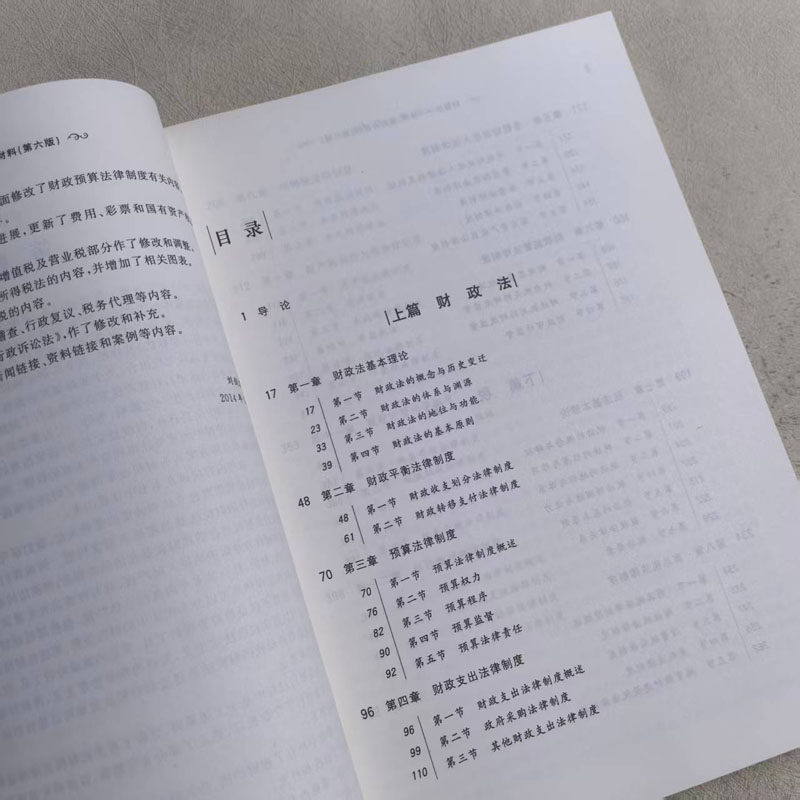 材料(第六版)
面修改了财政预算法律制度有关内
进展,更新了费用、彩票和国有资产
增值税及营业税部分作了修改和调整。
所得税法的内容,并增加了相关图表。
税的内容。
稽查、行政复议、税务代理等内容。
行政诉讼法》,作了修改和补充。
新闻链接、资料链接和案例等内容。
2014年
目 录
1 导 论
上篇 财 政 法
17 第一章 财政法基本理论
17 第一节 财政法的概念与历史变迁
23 第二节 财政法的体系与渊源
33 第三节 财政法的地位与功能
39 第四节 财政法的基本原则
48 第二章 财政平衡法律制度
48 第一节 财政收支划分法律制度
61 第二节 财政转移支付法律制度
70 第三章 预算法律制度
70 第一节 预算法律制度概述
76 第二节 预算权力
82 第三节 预算程序
90 第四节 预算监督
92 第五节 预算法律责任
96 第四章 财政支出法律制度
96 第一节 财政支出法律制度概述
99 第二节 政府采购法律制度
110 第三节 其他财政支出法律制度